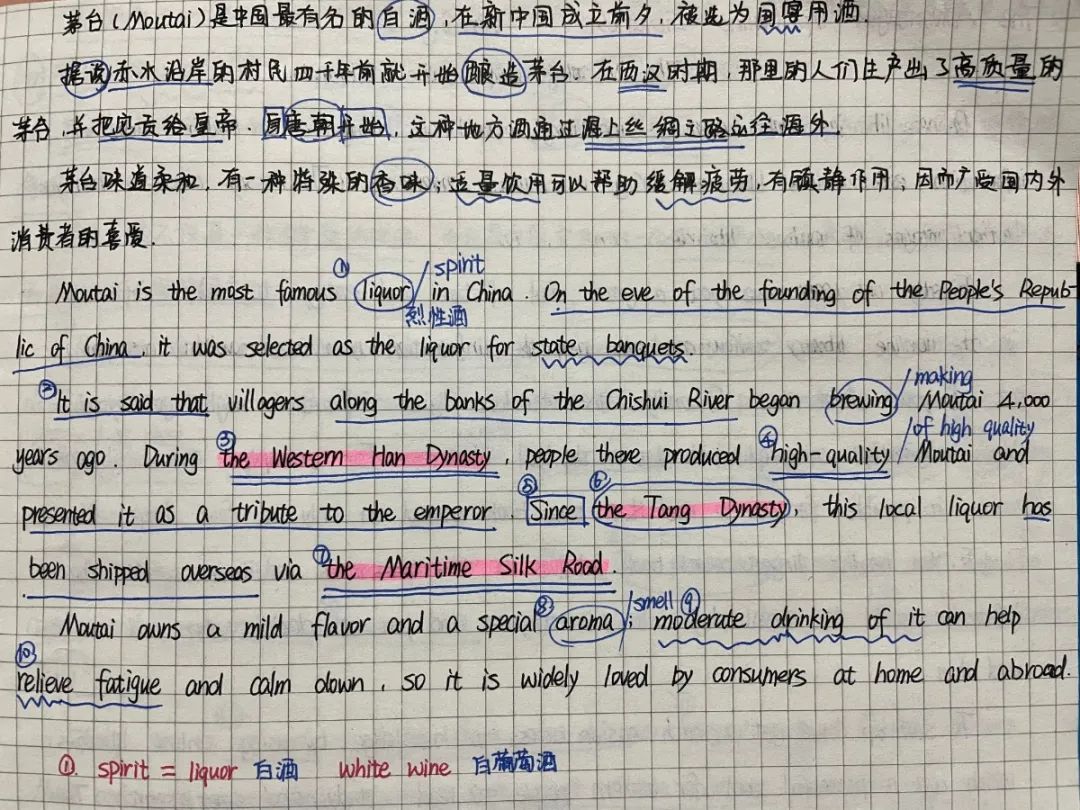 茅台(Moutai)是中国最有名的白酒,在新中国成立前夕,被选为国宴用酒.
据说赤水沿岸的村民四千年前就开始酿造茅台.在西汉时期,那里的人们生产出了高质量的
茅台,并把它贡给皇帝.自唐朝开始,这种地方酒通过海上丝绸之路运往海外.
茅台味道柔和,有一种特殊的香味;适量饮用可以帮助缓解疲劳,有镇静作用,因而广受国内外
消费者的喜爱.
① / spirit
Moutai is the most famous liquor in China. On the eve of the founding of the People's Repub-
烈性酒
lic of China, it was selected as the liquor for state banquets.
/ making
② It is said that villagers along the banks of the Chishui River began brewing Moutai 4,000
③ ④ / of high quality
years ago. During the Western Han Dynasty, people there produced high-quality Moutai and
⑤ ⑥
presented it as a tribute to the emperor. Since the Tang Dynasty, this local liquor has
been shipped overseas via ⑦ the Maritime Silk Road.
⑧ / smell ⑨
Moutai owns a mild flavor and a special aroma; moderate drinking of it can help
⑩
relieve fatigue and calm down, so it is widely loved by consumers at home and abroad.
①. spirit = liquor 白酒 white wine 白葡萄酒